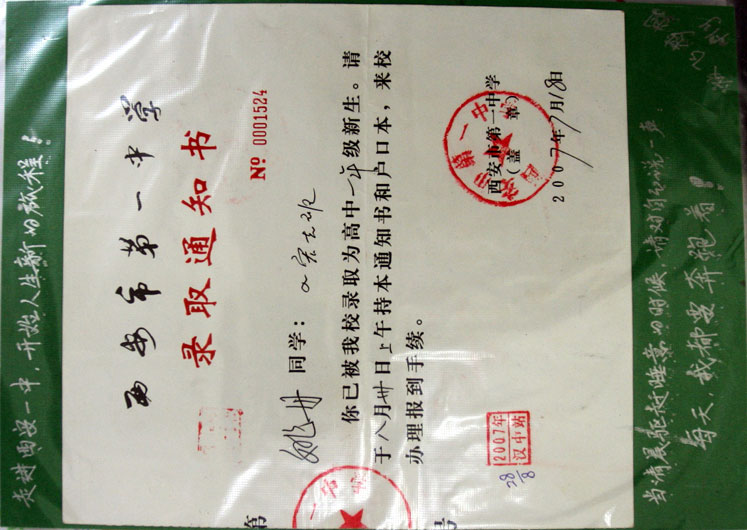 走进西安一中，开始人生新的旅程！
西安市第一中学
录取通知书
№ 0001524
姚丹 同学：
你已被我校录取为高中一年级新生。请
于八月卅日上午持本通知书和户口本，来校
办理报到手续。
西安市第一中学
（盖章）
2007年7月18日
2007年
汉中站
28/8
第
号
每天，我都要奔跑着！